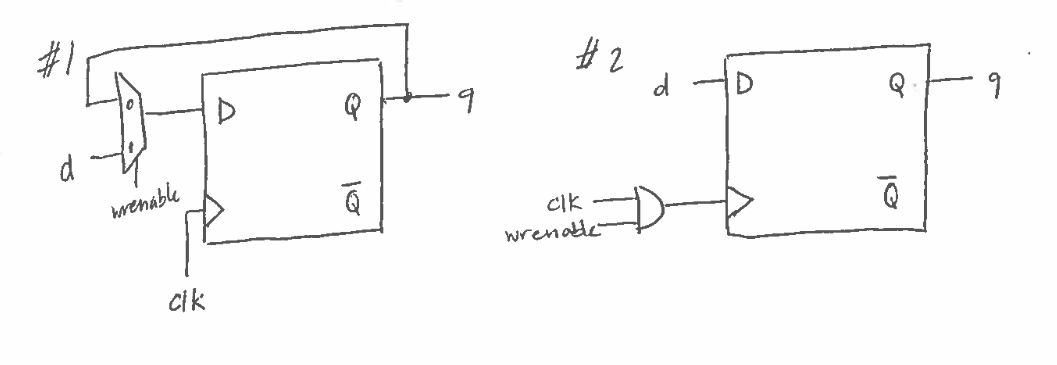 #1
0
1
d
wrenable
D
Q
Q̅
q
clk
#2
d
D
Q
q
clk
wrenable
Q̅